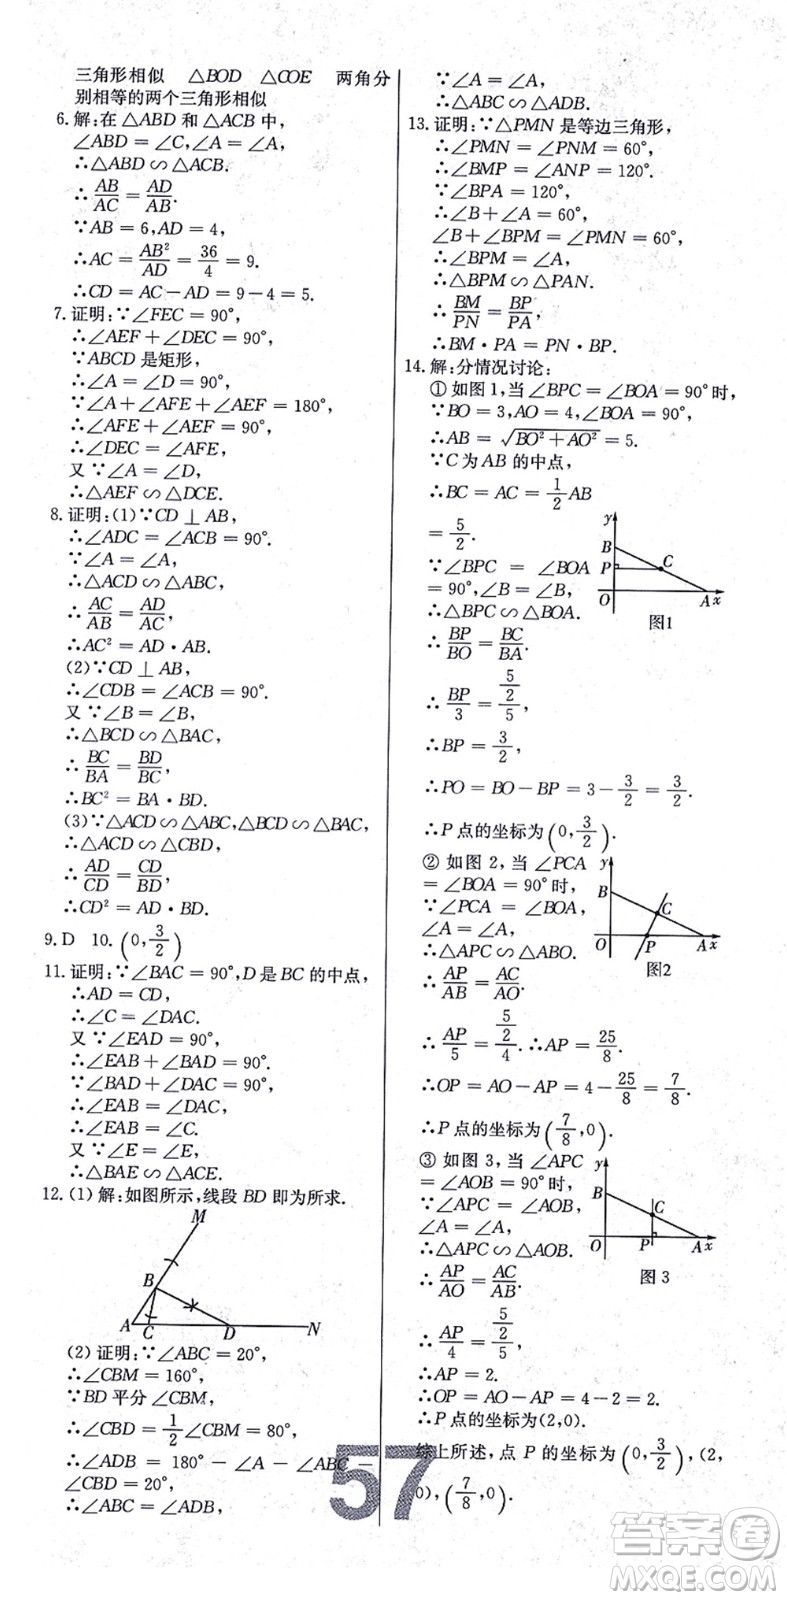 三角形相似　△BOD　△COE　两角分
别相等的两个三角形相似
6.解:在△ABD和△ACB中,
∠ABD=∠C,∠A=∠A,
∴△ABD∽△ACB.
∴AB/AC=AD/AB.
∵AB=6,AD=4,
∴AC=AB²/AD=36/4=9.
∴CD=AC-AD=9-4=5.
7.证明:∵∠FEC=90°,
∴∠AEF+∠DEC=90°.
∵ABCD是矩形,
∴∠A=∠D=90°,
∵∠A+∠AFE+∠AEF=180°,
∴∠AFE+∠AEF=90°.
∴∠DEC=∠AFE,
又∵∠A=∠D,
∴△AEF∽△DCE.
8.证明:(1)∵CD⊥AB,
∴∠ADC=∠ACB=90°.
∵∠A=∠A,
∴△ACD∽△ABC,
∴AC/AB=AD/AC,
∴AC²=AD·AB.
(2)∵CD⊥AB,
∴∠CDB=∠ACB=90°.
又∵∠B=∠B,
∴△BCD∽△BAC,
∴BC/BA=BD/BC,
∴BC²=BA·BD.
(3)∵△ACD∽△ABC,△BCD∽△BAC,
∴△ACD∽△CBD,
∴AD/CD=CD/BD,
∴CD²=AD·BD.
9.D　10.(0,3/2)
11.证明:∵∠BAC=90°,D是BC的中点,
∴AD=CD,
∴∠C=∠DAC.
又∵∠EAD=90°,
∴∠EAB+∠BAD=90°.
∵∠BAD+∠DAC=90°,
∴∠EAB=∠DAC,
∴∠EAB=∠C.
又∵∠E=∠E,
∴△BAE∽△ACE.
12.(1)解:如图所示,线段BD即为所求.
M
B
A C D N
(2)证明:∵∠ABC=20°,
∴∠CBM=160°,
∵BD平分∠CBM,
∴∠CBD=1/2∠CBM=80°,
∴∠ADB=180°-∠A-∠ABC-
∠CBD=20°,
∴∠ABC=∠ADB,
∵∠A=∠A,
∴△ABC∽△ADB.
13.证明:∵△PMN是等边三角形,
∴∠PMN=∠PNM=60°,
∴∠BMP=∠ANP=120°.
∵∠BPA=120°,
∴∠B+∠A=60°,
∠B+∠BPM=∠PMN=60°,
∴∠BPM=∠A,
∴△BPM∽△PAN.
∴BM/PN=BP/PA,
∴BM·PA=PN·BP.
14.解:分情况讨论:
①如图1,当∠BPC=∠BOA=90°时,
∵BO=3,AO=4,∠BOA=90°,
∴AB=√(BO²+AO²)=5.
∵C为AB的中点,
∴BC=AC=1/2AB
=5/2.
∵∠BPC=∠BOA
=90°,∠B=∠B,
∴△BPC∽△BOA.
y
B
P C
O A x
图1
∴BP/BO=BC/BA.
∴BP/3=(5/2)/5,
∴BP=3/2,
∴PO=BO-BP=3-3/2=3/2.
∴P点的坐标为(0,3/2).
②如图2,当∠PCA
=∠BOA=90°时,
∵∠PCA=∠BOA,
∠A=∠A,
∴△APC∽△ABO.
y
B
C
O P A x
图2
∴AP/AB=AC/AO.
∴AP/5=(5/2)/4.∴AP=25/8.
∴OP=AO-AP=4-25/8=7/8.
∴P点的坐标为(7/8,0).
③如图3,当∠APC
=∠AOB=90°时,
∵∠APC=∠AOB,
∠A=∠A,
∴△APC∽△AOB.
y
B
C
O P A x
图3
∴AP/AO=AC/AB.
∴AP/4=(5/2)/5,
∴AP=2.
∴OP=AO-AP=4-2=2.
∴P点的坐标为(2,0).
综上所述,点P的坐标为(0,3/2),(2,
0),(7/8,0).
57
答案圈
MXQE.COM